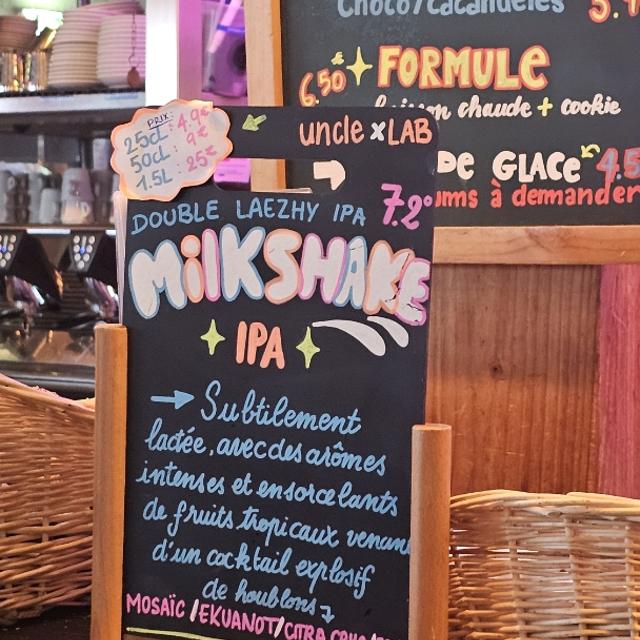 Choco/Cacahuètes 5.
6.50€ FORMULE
boisson chaude + cookie
DE GLACE 4.5
ums à demander
PRIX:
25cl: 4.9€
50cl: 9€
1.5L: 25€
uncle x LAB
7.2°
DOUBLE LAEZHY IPA
MILKSHAKE
IPA
→ Subtilement
lactée, avec des arômes
intenses et ensorcelants
de fruits tropicaux venant
d'un cocktail explosif
de houblons
MOSAÏC / EKUANOT / CITRA CRYO